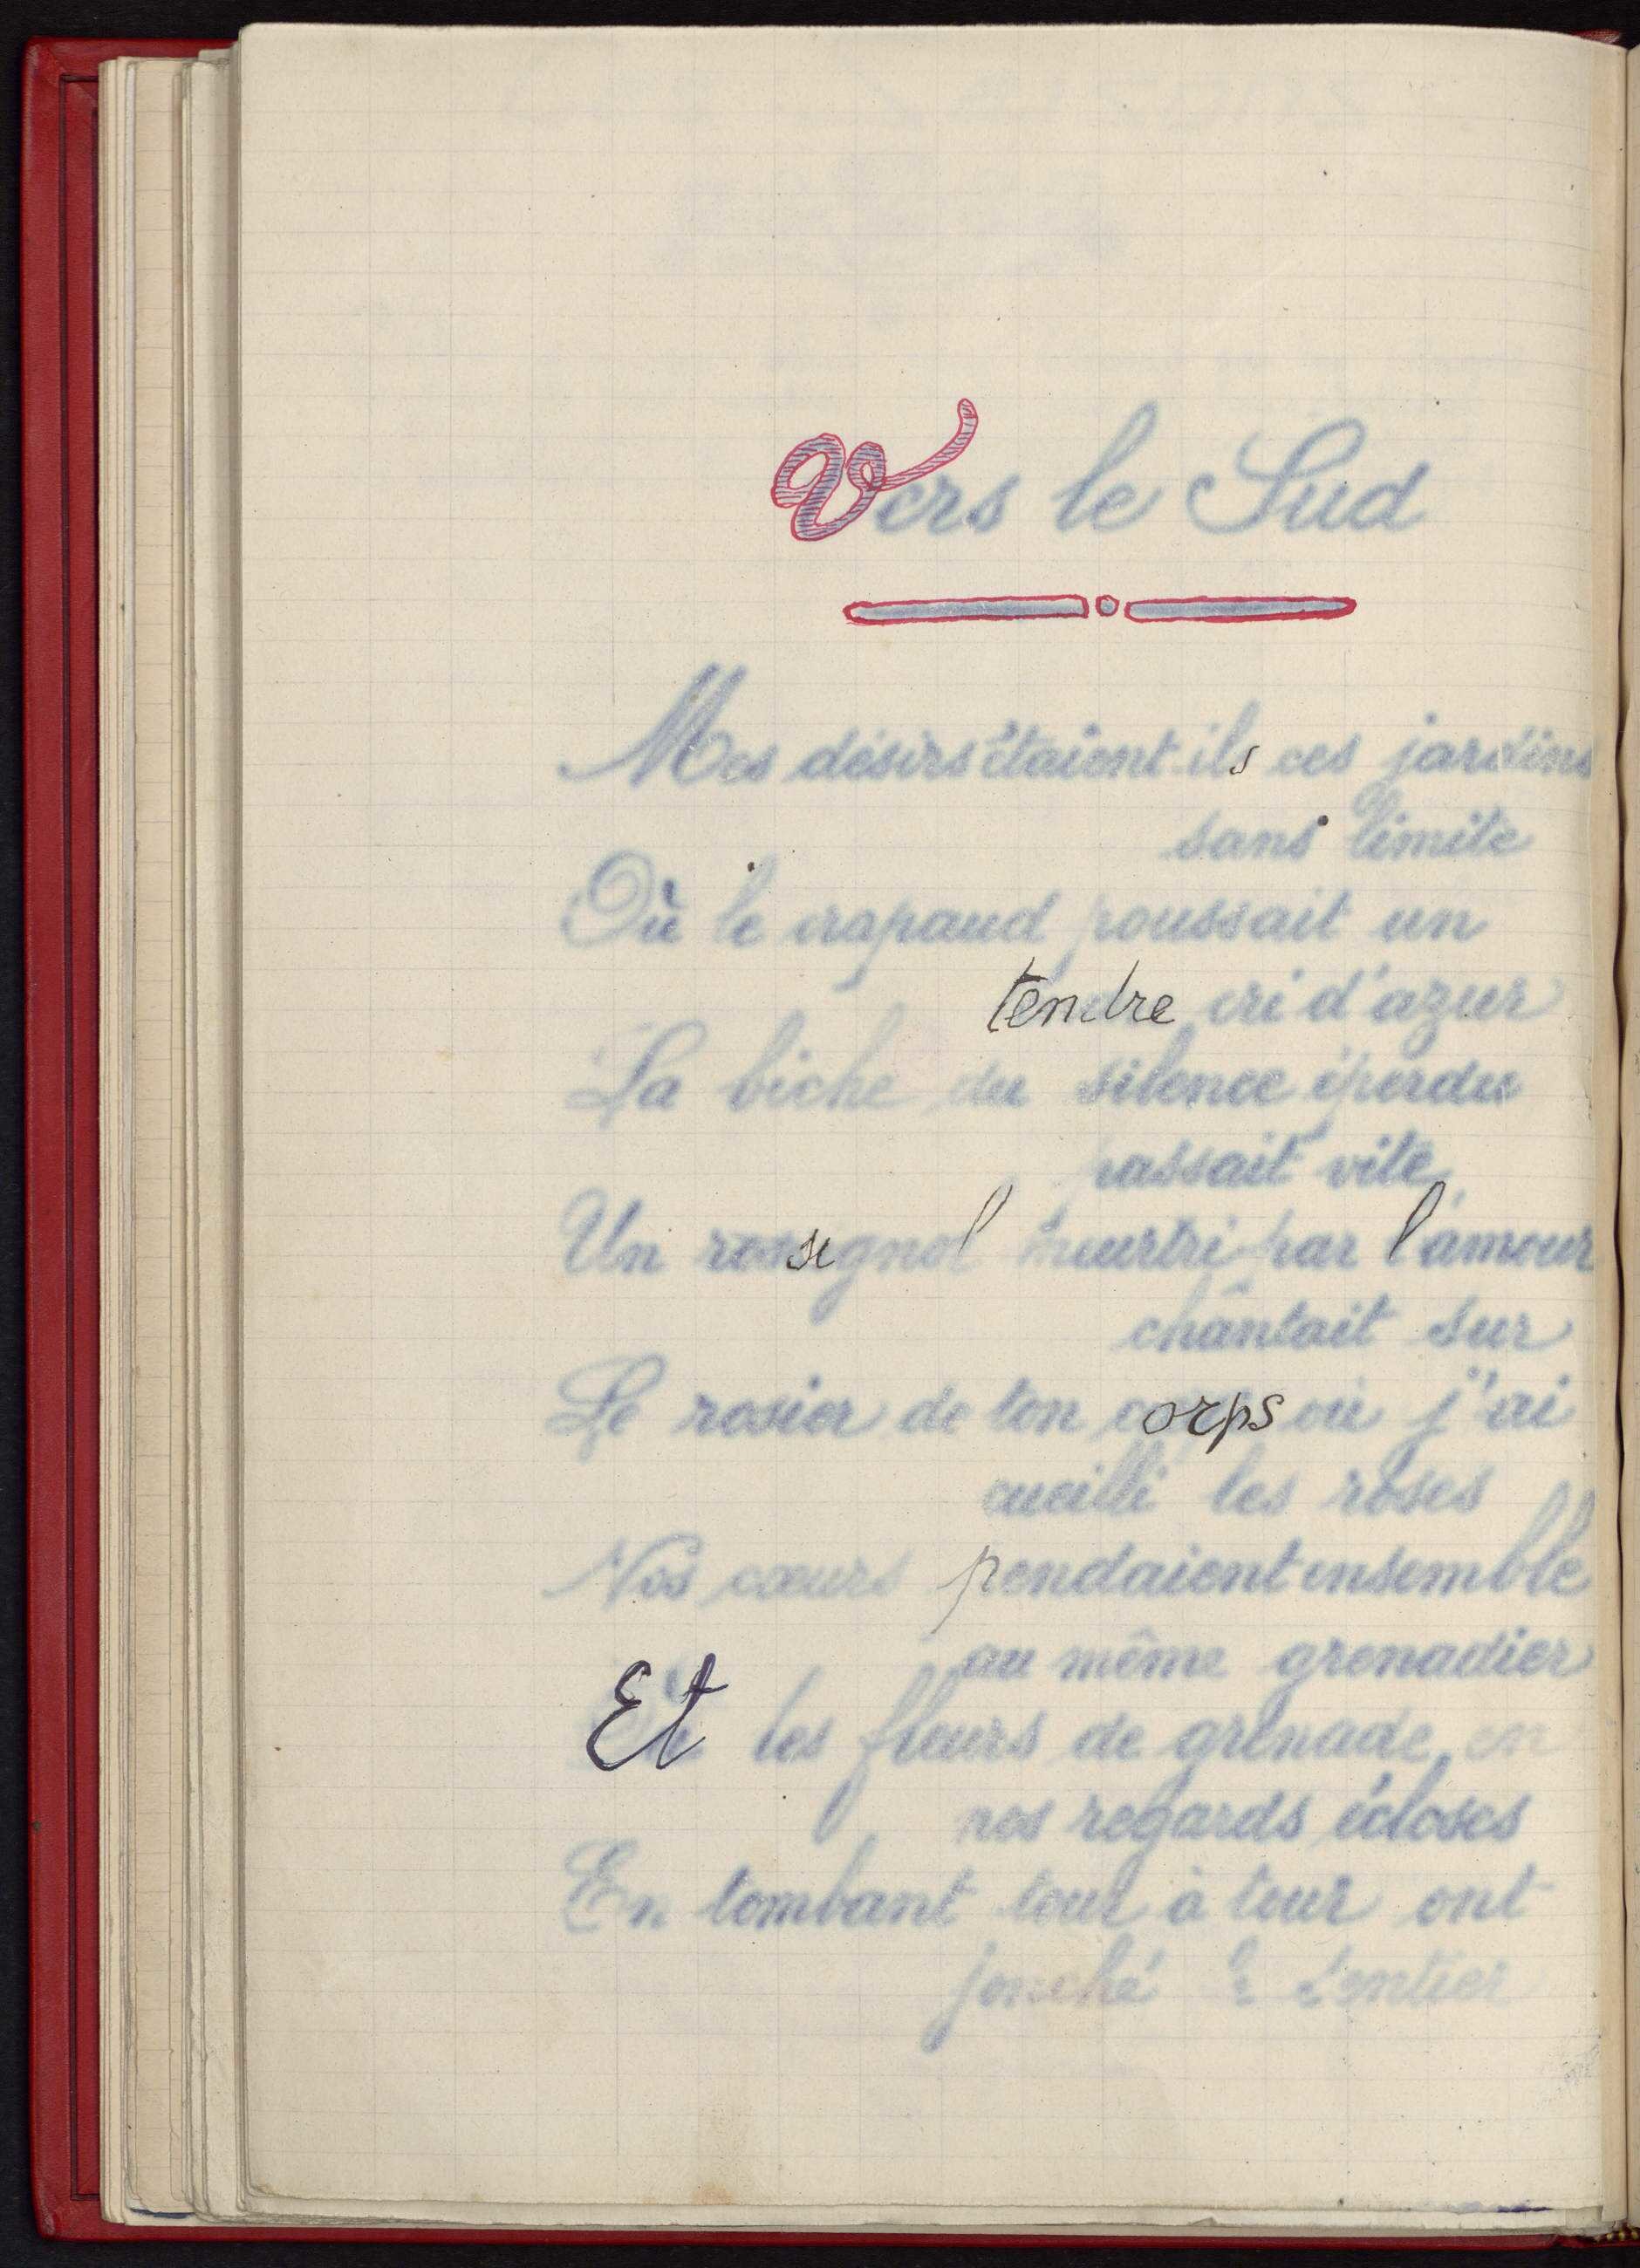 Vers le Sud
Mes désirs étaient-ils ces jardins
sans limite
Où le crapaud poussait un
tendre cri d'azur
La biche du silence éperdu
passait vite
Un rossignol meurtri par l'amour
chantait sur
Le rosier de ton corps où j'ai
cueilli les roses
Nos cœurs pendaient ensemble
au même grenadier
Et les fleurs de grenade en
nos regards écloses
En tombant tour à tour ont
jonché le sentier